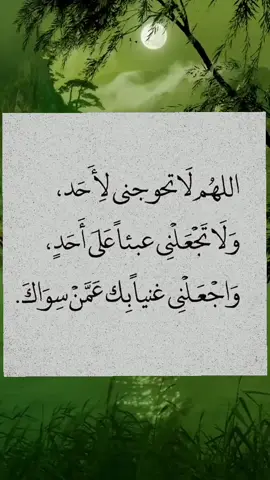 اللهُم لَا تحوجنى لِأَحَد،
وَلَا تَجْعَلْنِى عبئاً عَلَى أَحَدٍ،
وَاجْعَلْنِى غنياً بِك عَمَّنْ سِوَاكَ.